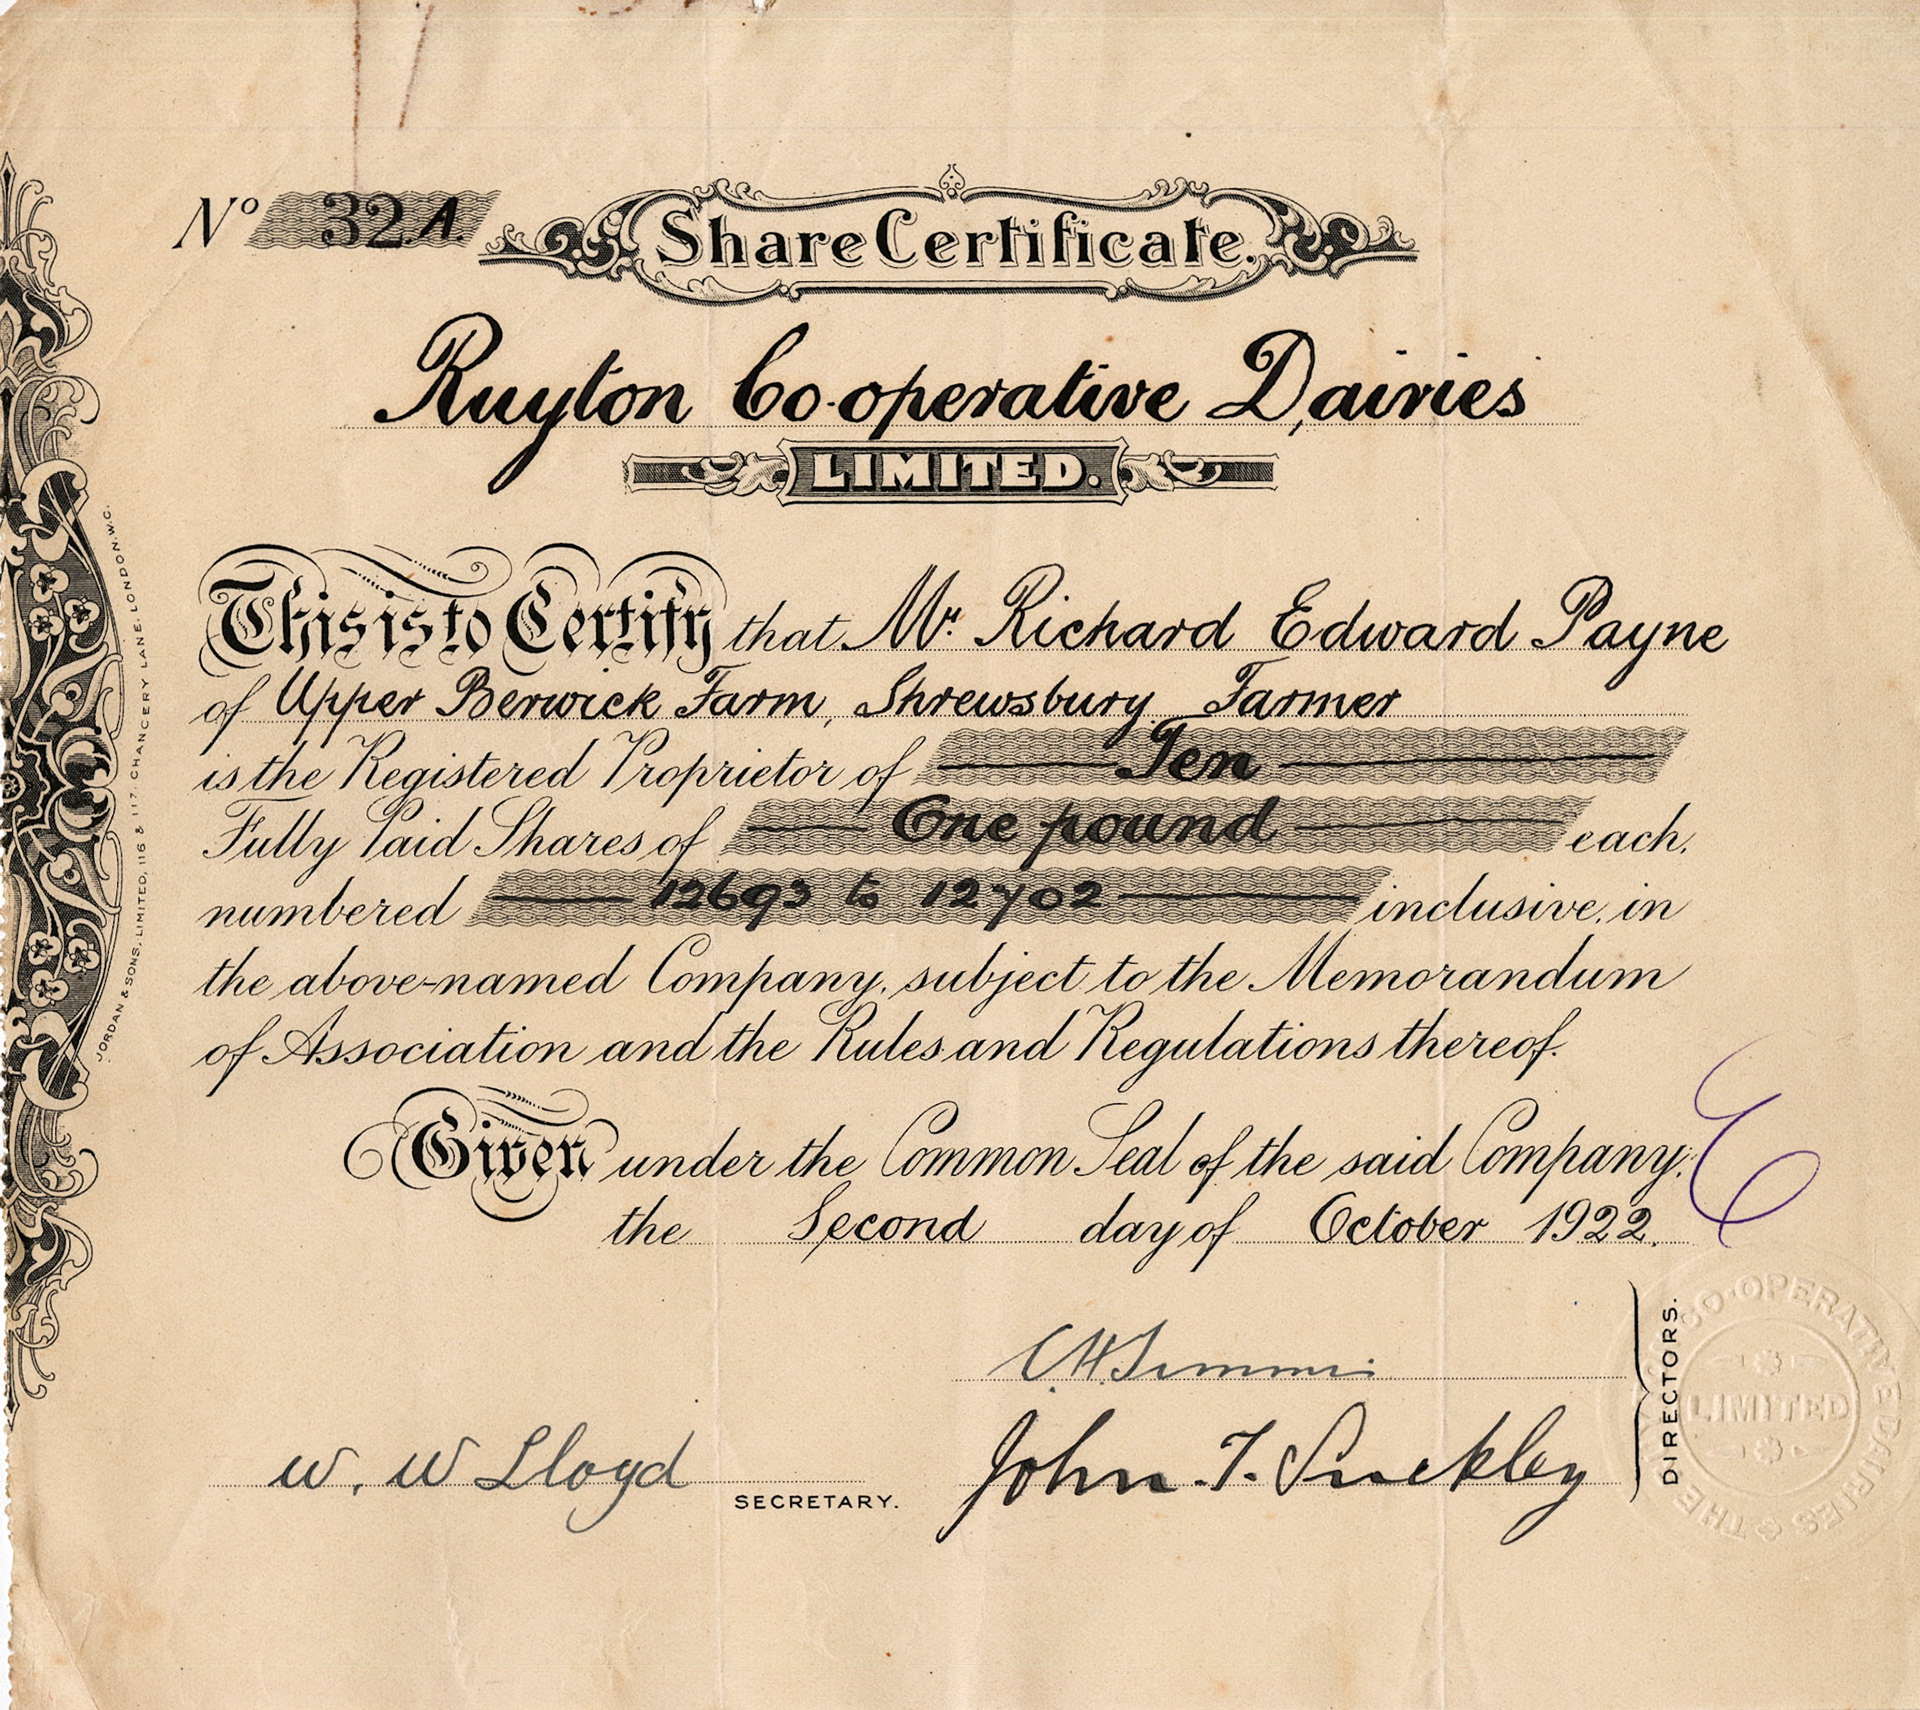 Nº 32.A.
Share Certificate.
Ruyton Co-operative Dairies
LIMITED.
This is to Certify that Mr. Richard Edward Payne
of Upper Berwick Farm, Shrewsbury. Farmer
is the Registered Proprietor of Ten
Fully Paid Shares of One pound each,
numbered 12693 to 12702 inclusive, in
the above-named Company, subject to the Memorandum
of Association and the Rules and Regulations thereof.
Given under the Common Seal of the said Company,
the Second day of October 1922.
C.H.
W. W Lloyd
SECRETARY.
John. T.
DIRECTORS.
CO-OPERATIVE DAIRIES & THE
LIMITED
JORDAN & SONS, LIMITED, 116 & 117, CHANCERY LANE, LONDON, W.C.